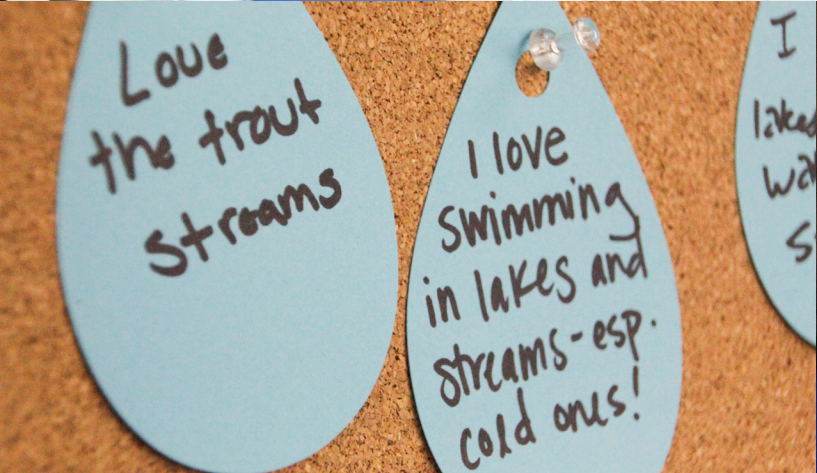 Love
the trout
streams
I love
swimming
in lakes and
streams-esp.
cold ones!
I
lakes